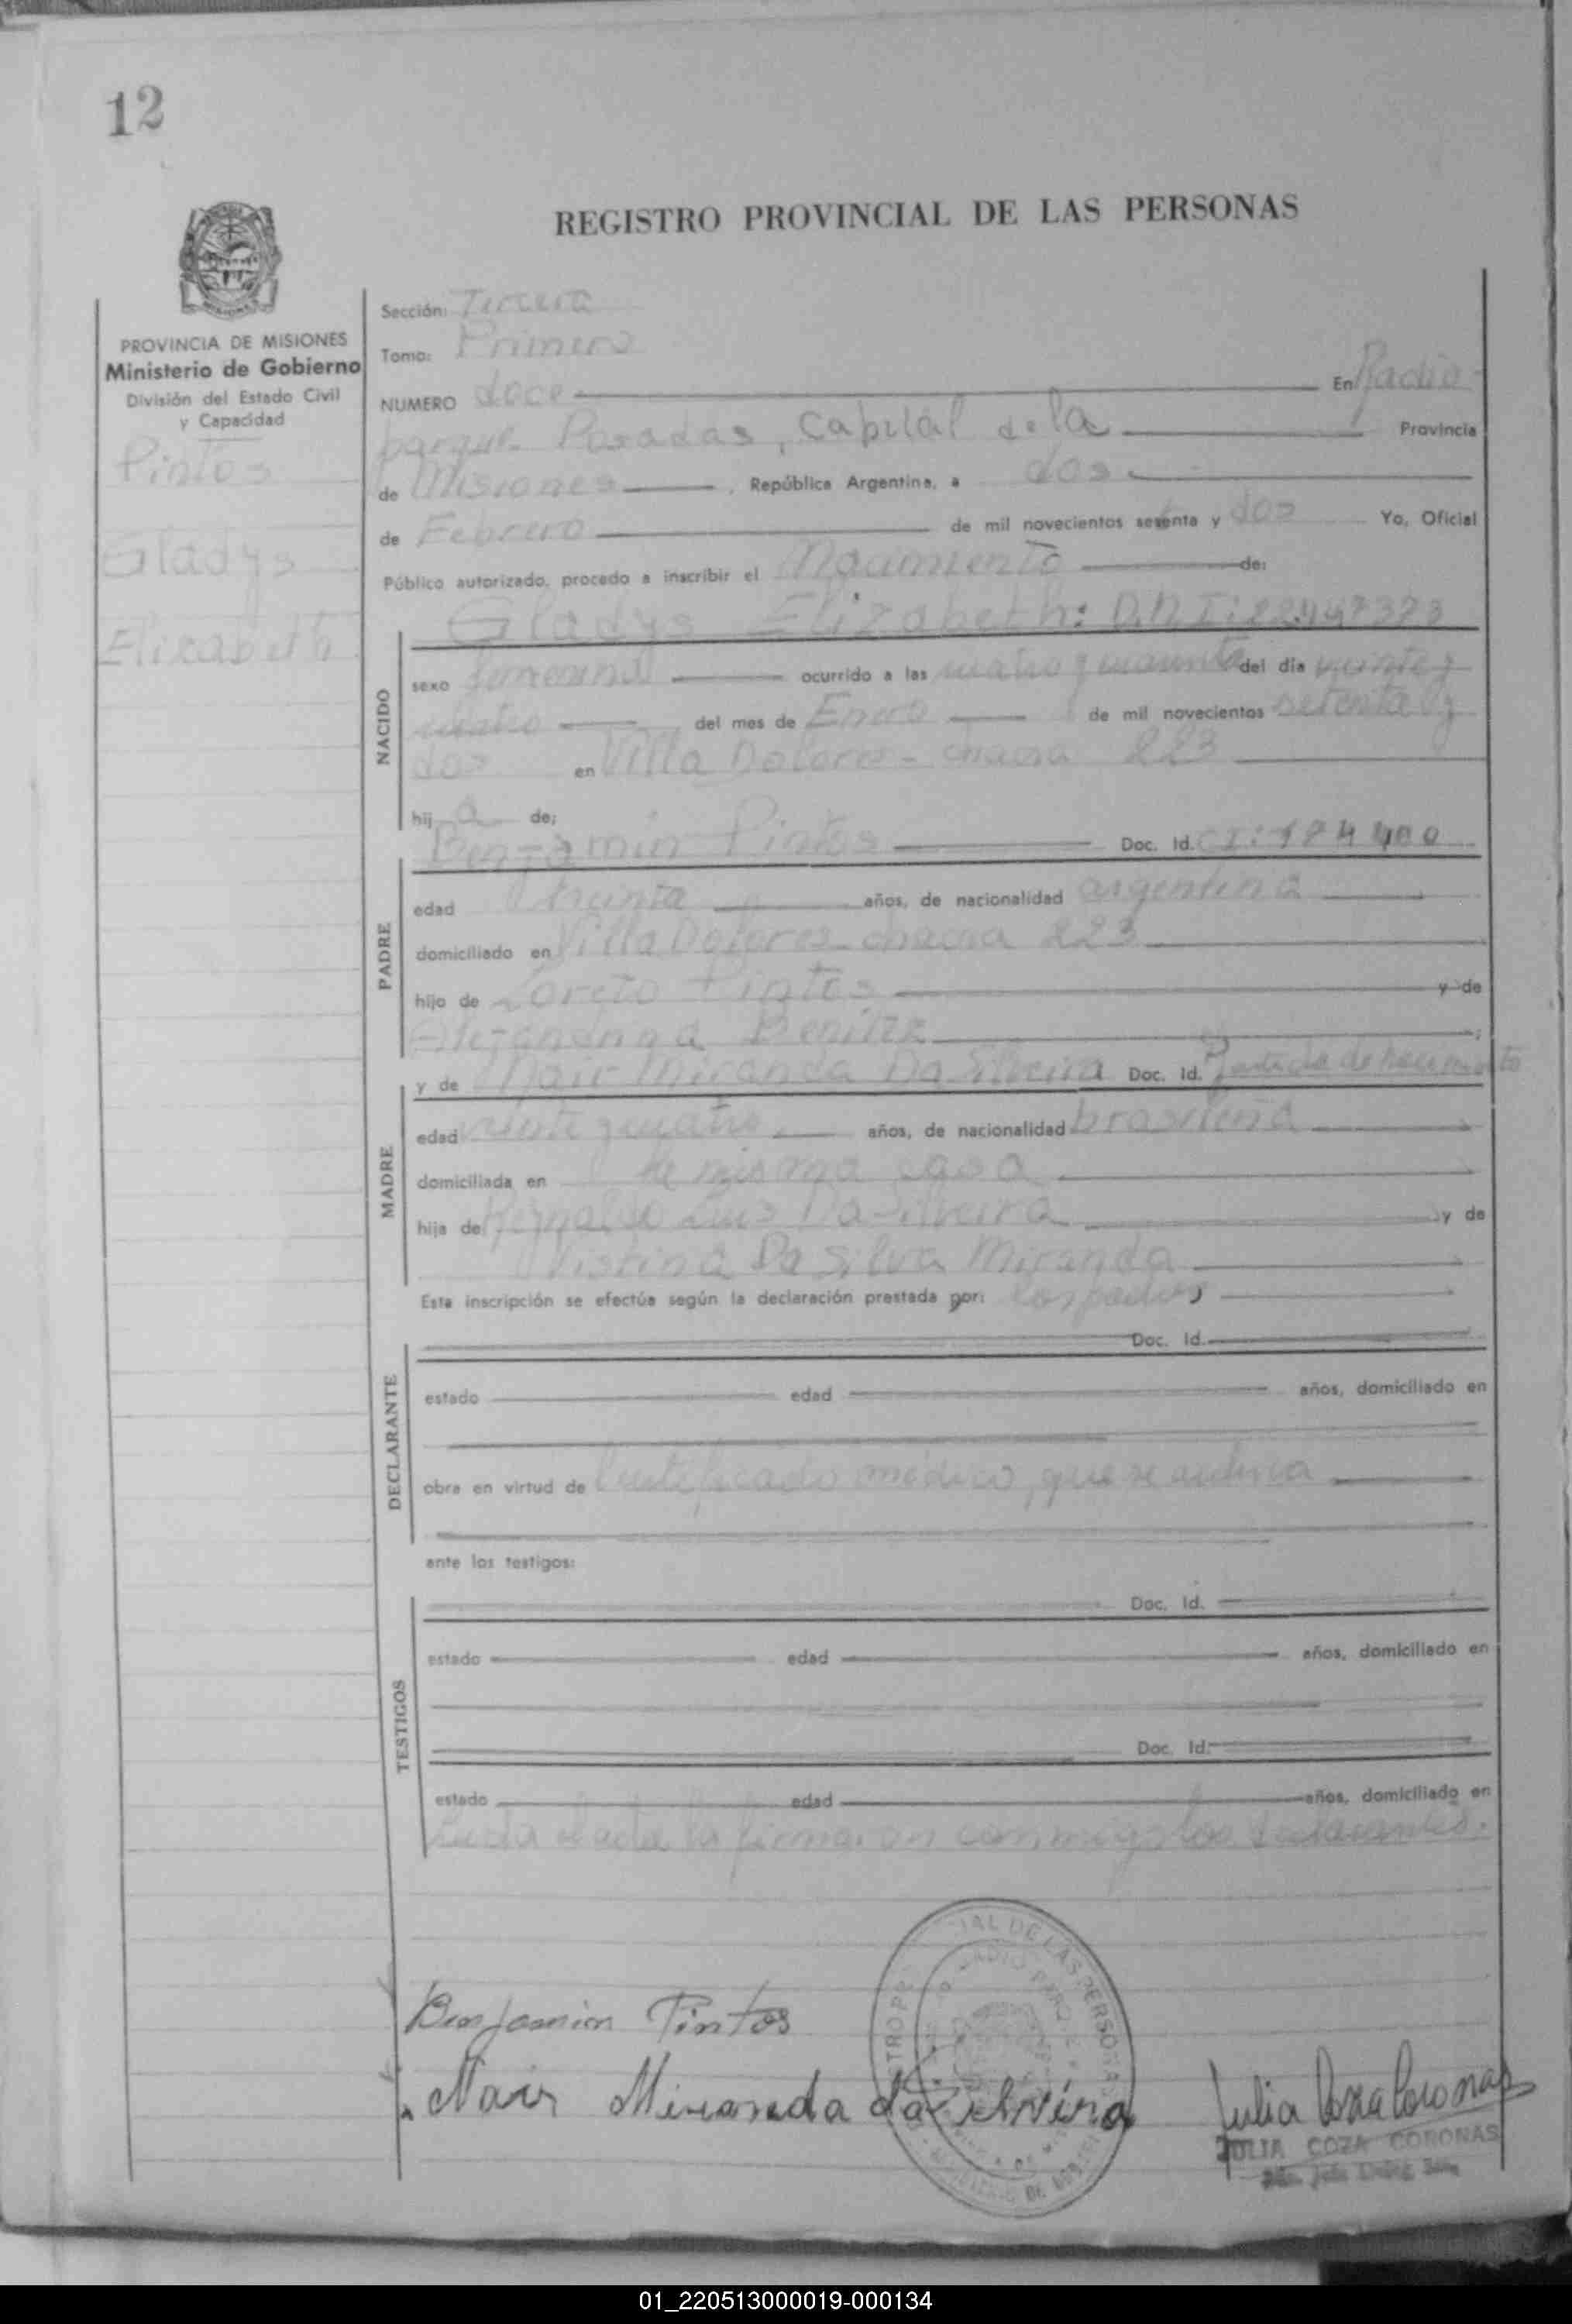 12
REGISTRO PROVINCIAL DE LAS PERSONAS
PROVINCIA DE MISIONES
Ministerio de Gobierno
División del Estado Civil
y Capacidad
Pintos
Gladys
Elizabeth
Sección: Tercera
Tomo: Primero
NUMERO doce En Radio
parque Posadas, Capital de la Provincia
de Misiones, República Argentina, a dos
de Febrero de mil novecientos setenta y dos Yo, Oficial
Público autorizado, procedo a inscribir el Nacimiento de:
Gladys Elizabeth: D.N.I: 22.147373
NACIDO
sexo femenino ocurrido a las cuatro y cuarenta del día veinte y
cuatro del mes de Enero de mil novecientos setenta y
dos en Villa Dolores - chacra 223
hij a de;
Benjamin Pintos Doc. Id. CI: 184400
PADRE
edad treinta años, de nacionalidad argentina
domiciliado en Villa Dolores chacra 223
hijo de Loreto Pintos y de
Alejandrina Benitez
y de Nair Miranda Da Silveira Doc. Id. Partida de nacimiento
MADRE
edad veinte y cuatro años, de nacionalidad brasileña
domiciliada en la misma casa
hija de Luis Da Silveira y de
Da Silva Miranda
Esta inscripción se efectúa según la declaración prestada por: los padres
Doc. Id.
DECLARANTE
estado edad años, domiciliado en
obra en virtud de Certificado médico, que se archiva
ante los testigos:
Doc. Id.
TESTIGOS
estado edad años, domiciliado en
Doc. Id.
estado edad años, domiciliado en
Leida el acta la firmaron conmigo los declarantes.
Benjamin Pintos
Nair Miranda da Silveira
Julia Coza Coronas
JULIA COZA CORONAS
01_220513000019-000134